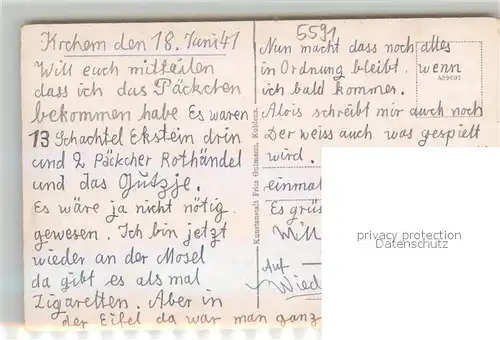 Krchem den 18. Juni 41
Will euch mitteilen
dass ich das Päckchen
bekommen habe Es waren
13 Schachtel Ekstein drin
und 2 Päckcher Rothändel
und das Gutzje.
Es wäre ja nicht nötig
gewesen. Ich bin jetzt
wieder an der Mosel
da gibt es als mal
Zigaretten. Aber in
der Eifel da war man ganz
Kunstanstalt Fritz Gutmann, Koblenz.
5591
Nun macht dass noch alles
in Ordnung bleibt, wenn
ich bald kommer.
Alois schreibt mir auch noch
Der weiss auch was gespielt
wird.
einmal
Es grüs
Will
Auf
Wied
privacy protection
Datenschutz